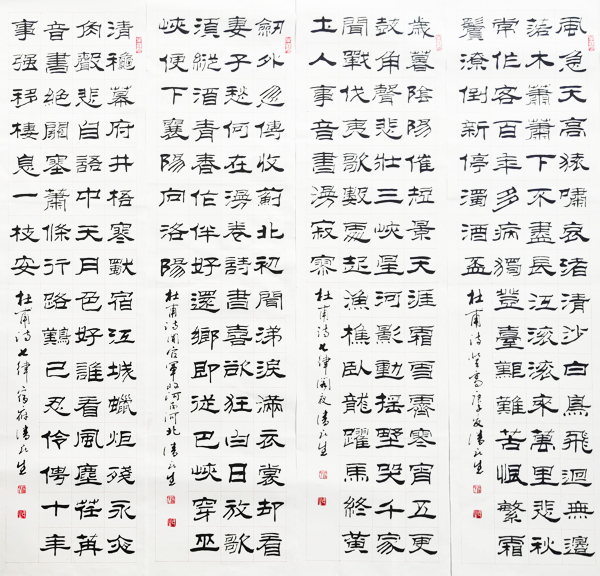 風急天高猿嘯哀渚清沙白鳥飛迴無邊
落木蕭蕭下不盡長江滾滾來萬里悲秋
常作客百年多病獨登臺艱難苦恨繁霜
鬢潦倒新停濁酒盃
杜甫詩登高庚子
歲暮陰陽催短景天涯霜雪霽寒宵五更
鼓角聲悲壯三峽星河影動搖野哭千家
聞戰伐夷歌數處起漁樵臥龍躍馬終黃
土人事音書漫寂寥
杜甫詩七律閣夜
劍外忽傳收薊北初聞涕淚滿衣裳却看
妻子愁何在漫卷詩書喜欲狂白日放歌
須縱酒青春作伴好還鄉即從巴峽穿巫
峽便下襄陽向洛陽
杜甫詩聞官軍收河南河北
清穐幕府井梧寒獨宿江城蠟炬殘永夜
角聲悲自語中天月色好誰看風塵荏苒
音書絕關塞蕭條行路難已忍伶俜十年
事强移棲息一枝安
杜甫詩七律宿府